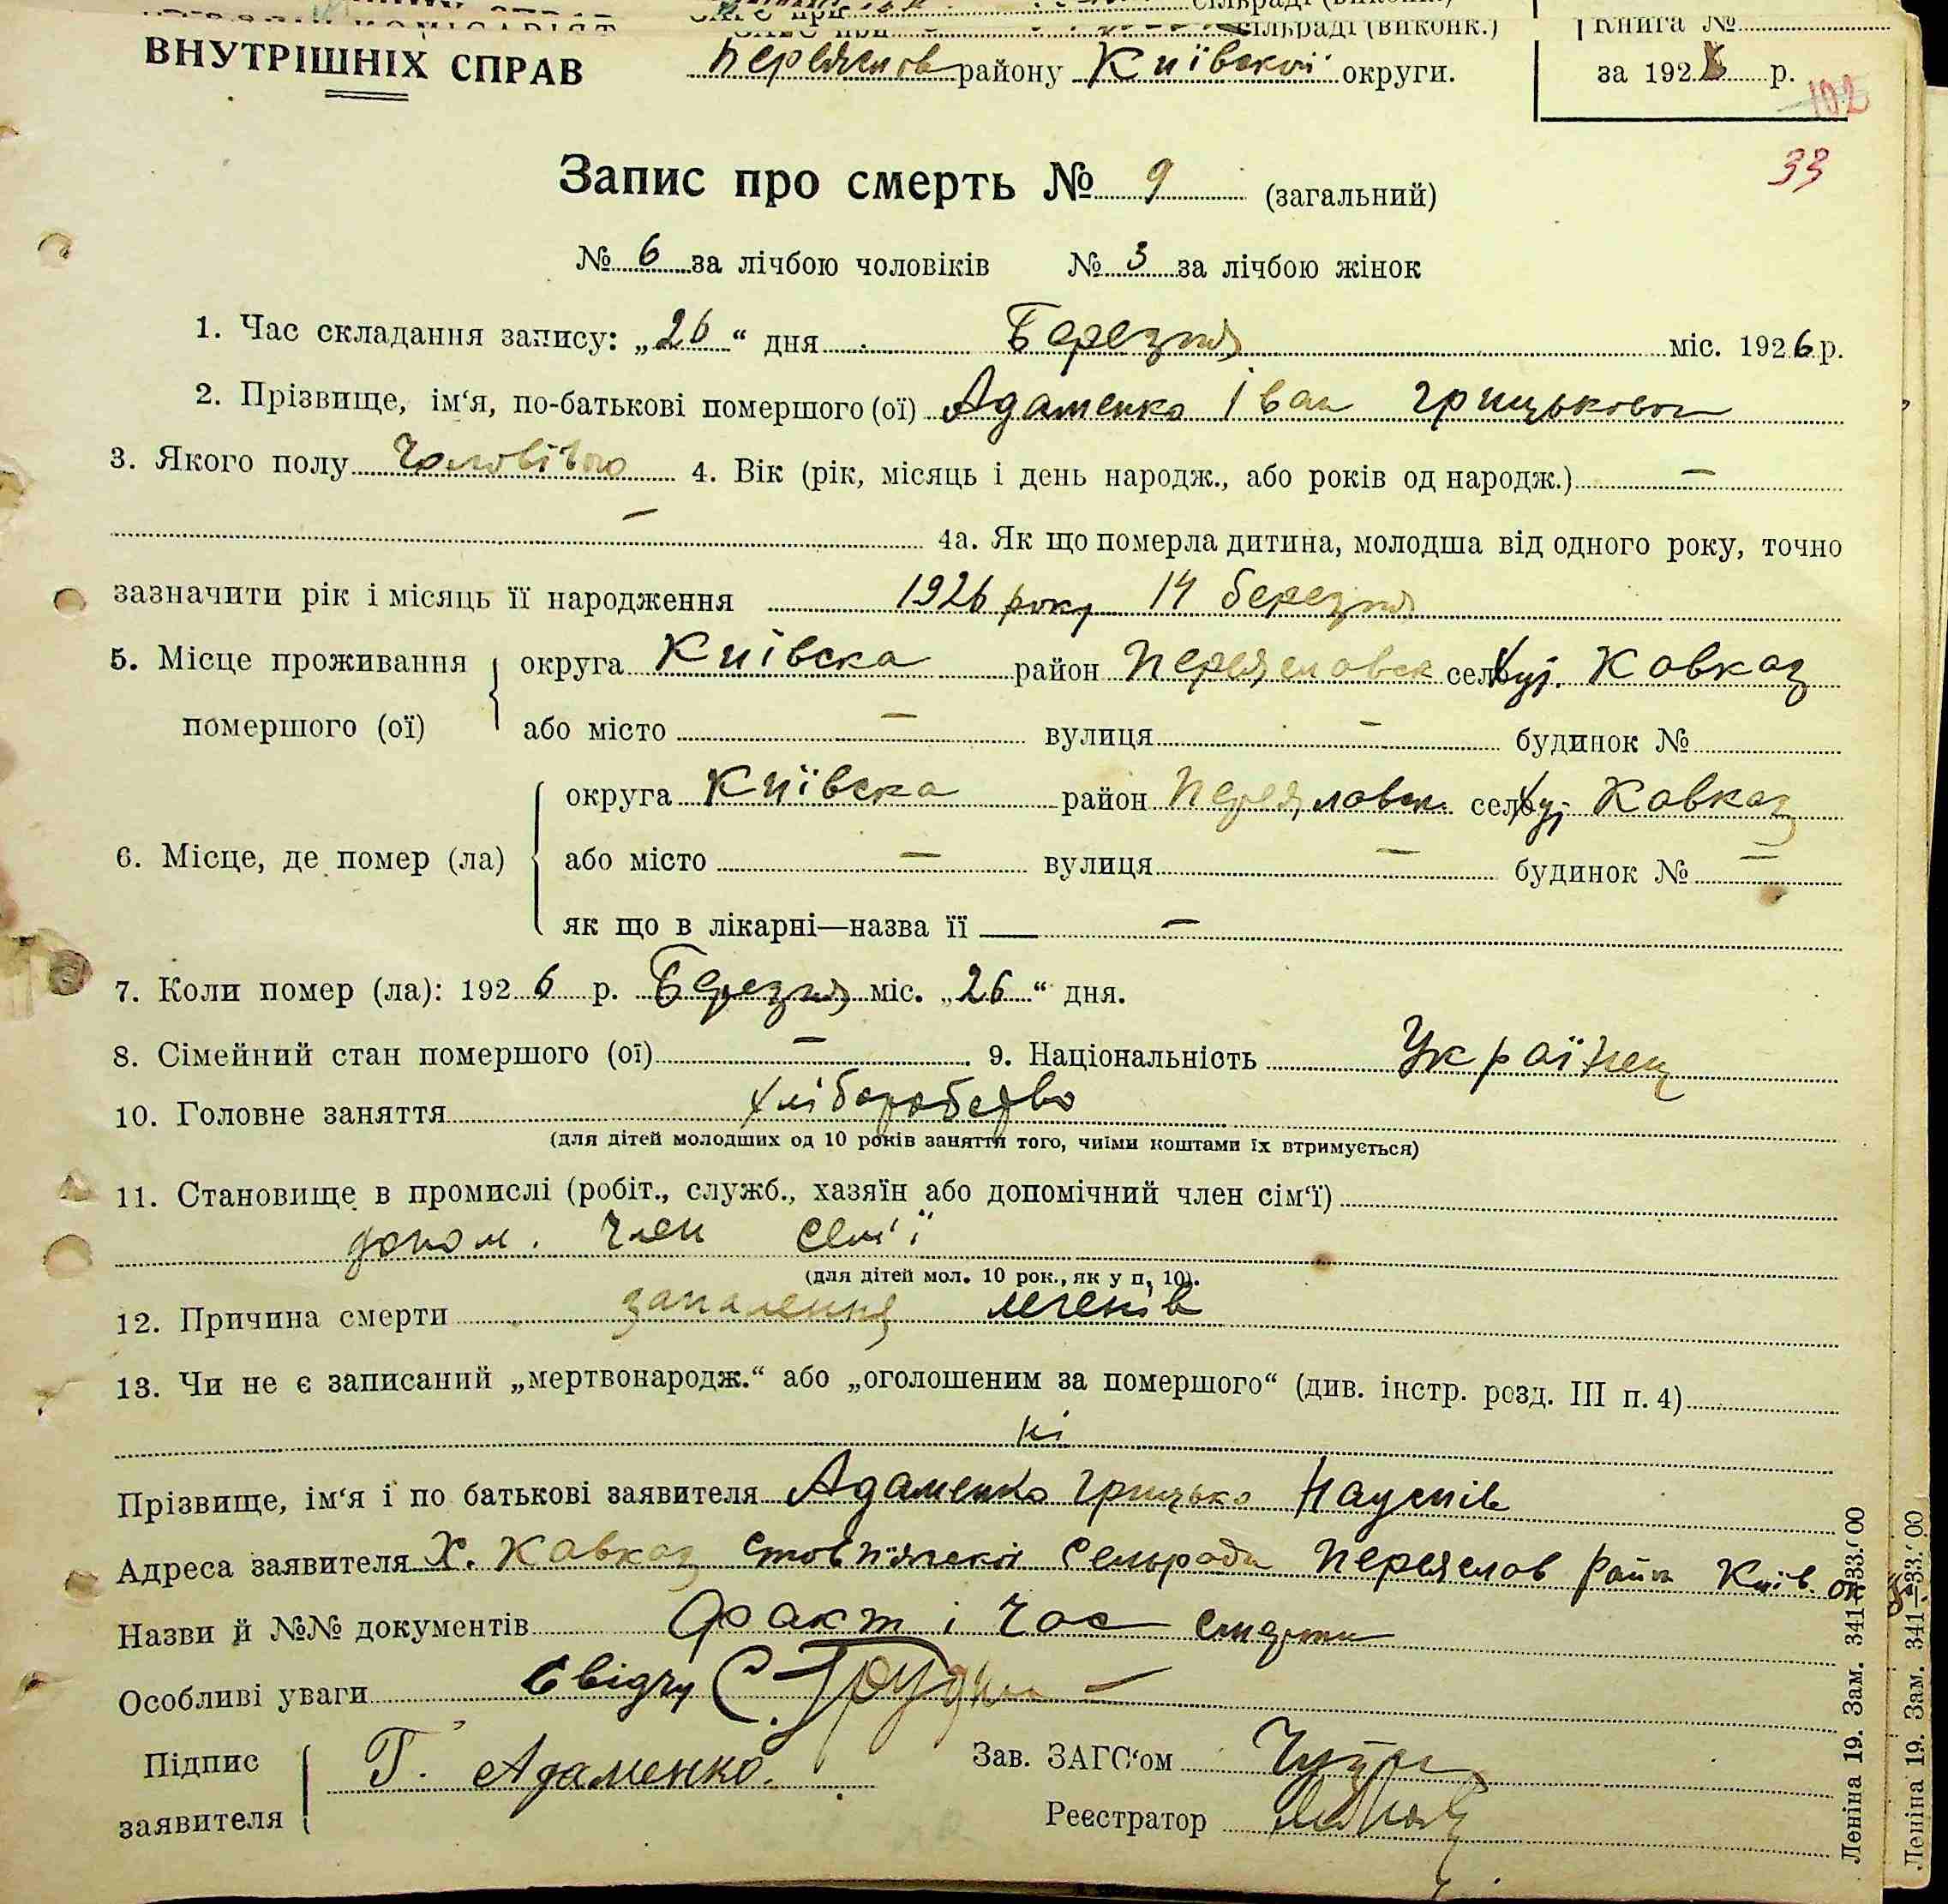 сільраді (виконк.)
Книга №
ВНУТРІШНІХ СПРАВ
Переяслов району Київскої округи.
за 192 р.
102
Запис про смерть № 9 (загальний)
33
№ 6 за лічбою чоловіків № 3 за лічбою жінок
1. Час складання запису: „26“ дня Березня міс. 1926 р.
2. Прізвище, ім‘я, по-батькові помершого (ої) Адаменко Іван Грицькович
3. Якого полу Чоловічого 4. Вік (рік, місяць і день народж., або років од народж.) —
— 4а. Як що померла дитина, молодша від одного року, точно
зазначити рік і місяць її народження 1926 року 14 березня
5. Місце проживання помершого (ої) округа Київска район Переяславск село хут. Кавказ
або місто — вулиця — будинок №
6. Місце, де помер (ла) округа Київска район Переяславск. село хут. Кавказ
або місто — вулиця — будинок № —
як що в лікарні—назва її —
7. Коли помер (ла): 1926 р. Березня міс. „26“ дня.
8. Сімейний стан помершого (ої) — 9. Національність Українец
10. Головне заняття хліборобство
(для дітей молодших од 10 років заняття того, чиїми коштами їх втримується)
11. Становище в промислі (робіт., служб., хазяїн або допомічний член сім‘ї)
допом. член сем'ї
(для дітей мол. 10 рок., як у п. 10).
12. Причина смерти запалення легенів
13. Чи не є записаний „мертвонародж.“ або „оголошеним за помершого“ (див. інстр. розд. III п. 4)
ні
Прізвище, ім‘я і по батькові заявителя Адаменко Грицько Наумів
Адреса заявителя Х. Кавказ Стовп'язскої Сельради Переяслов Райн Київ. окр
Назви й №№ документів Факт і час смерти
Особливі уваги свідчу С. —
Підпис заявителя Г. Адаменко.
Зав. ЗАГС‘ом
Реєстратор
Леніна 19. Зам. 341—33.000
Леніна 19. Зам. 341—33.000